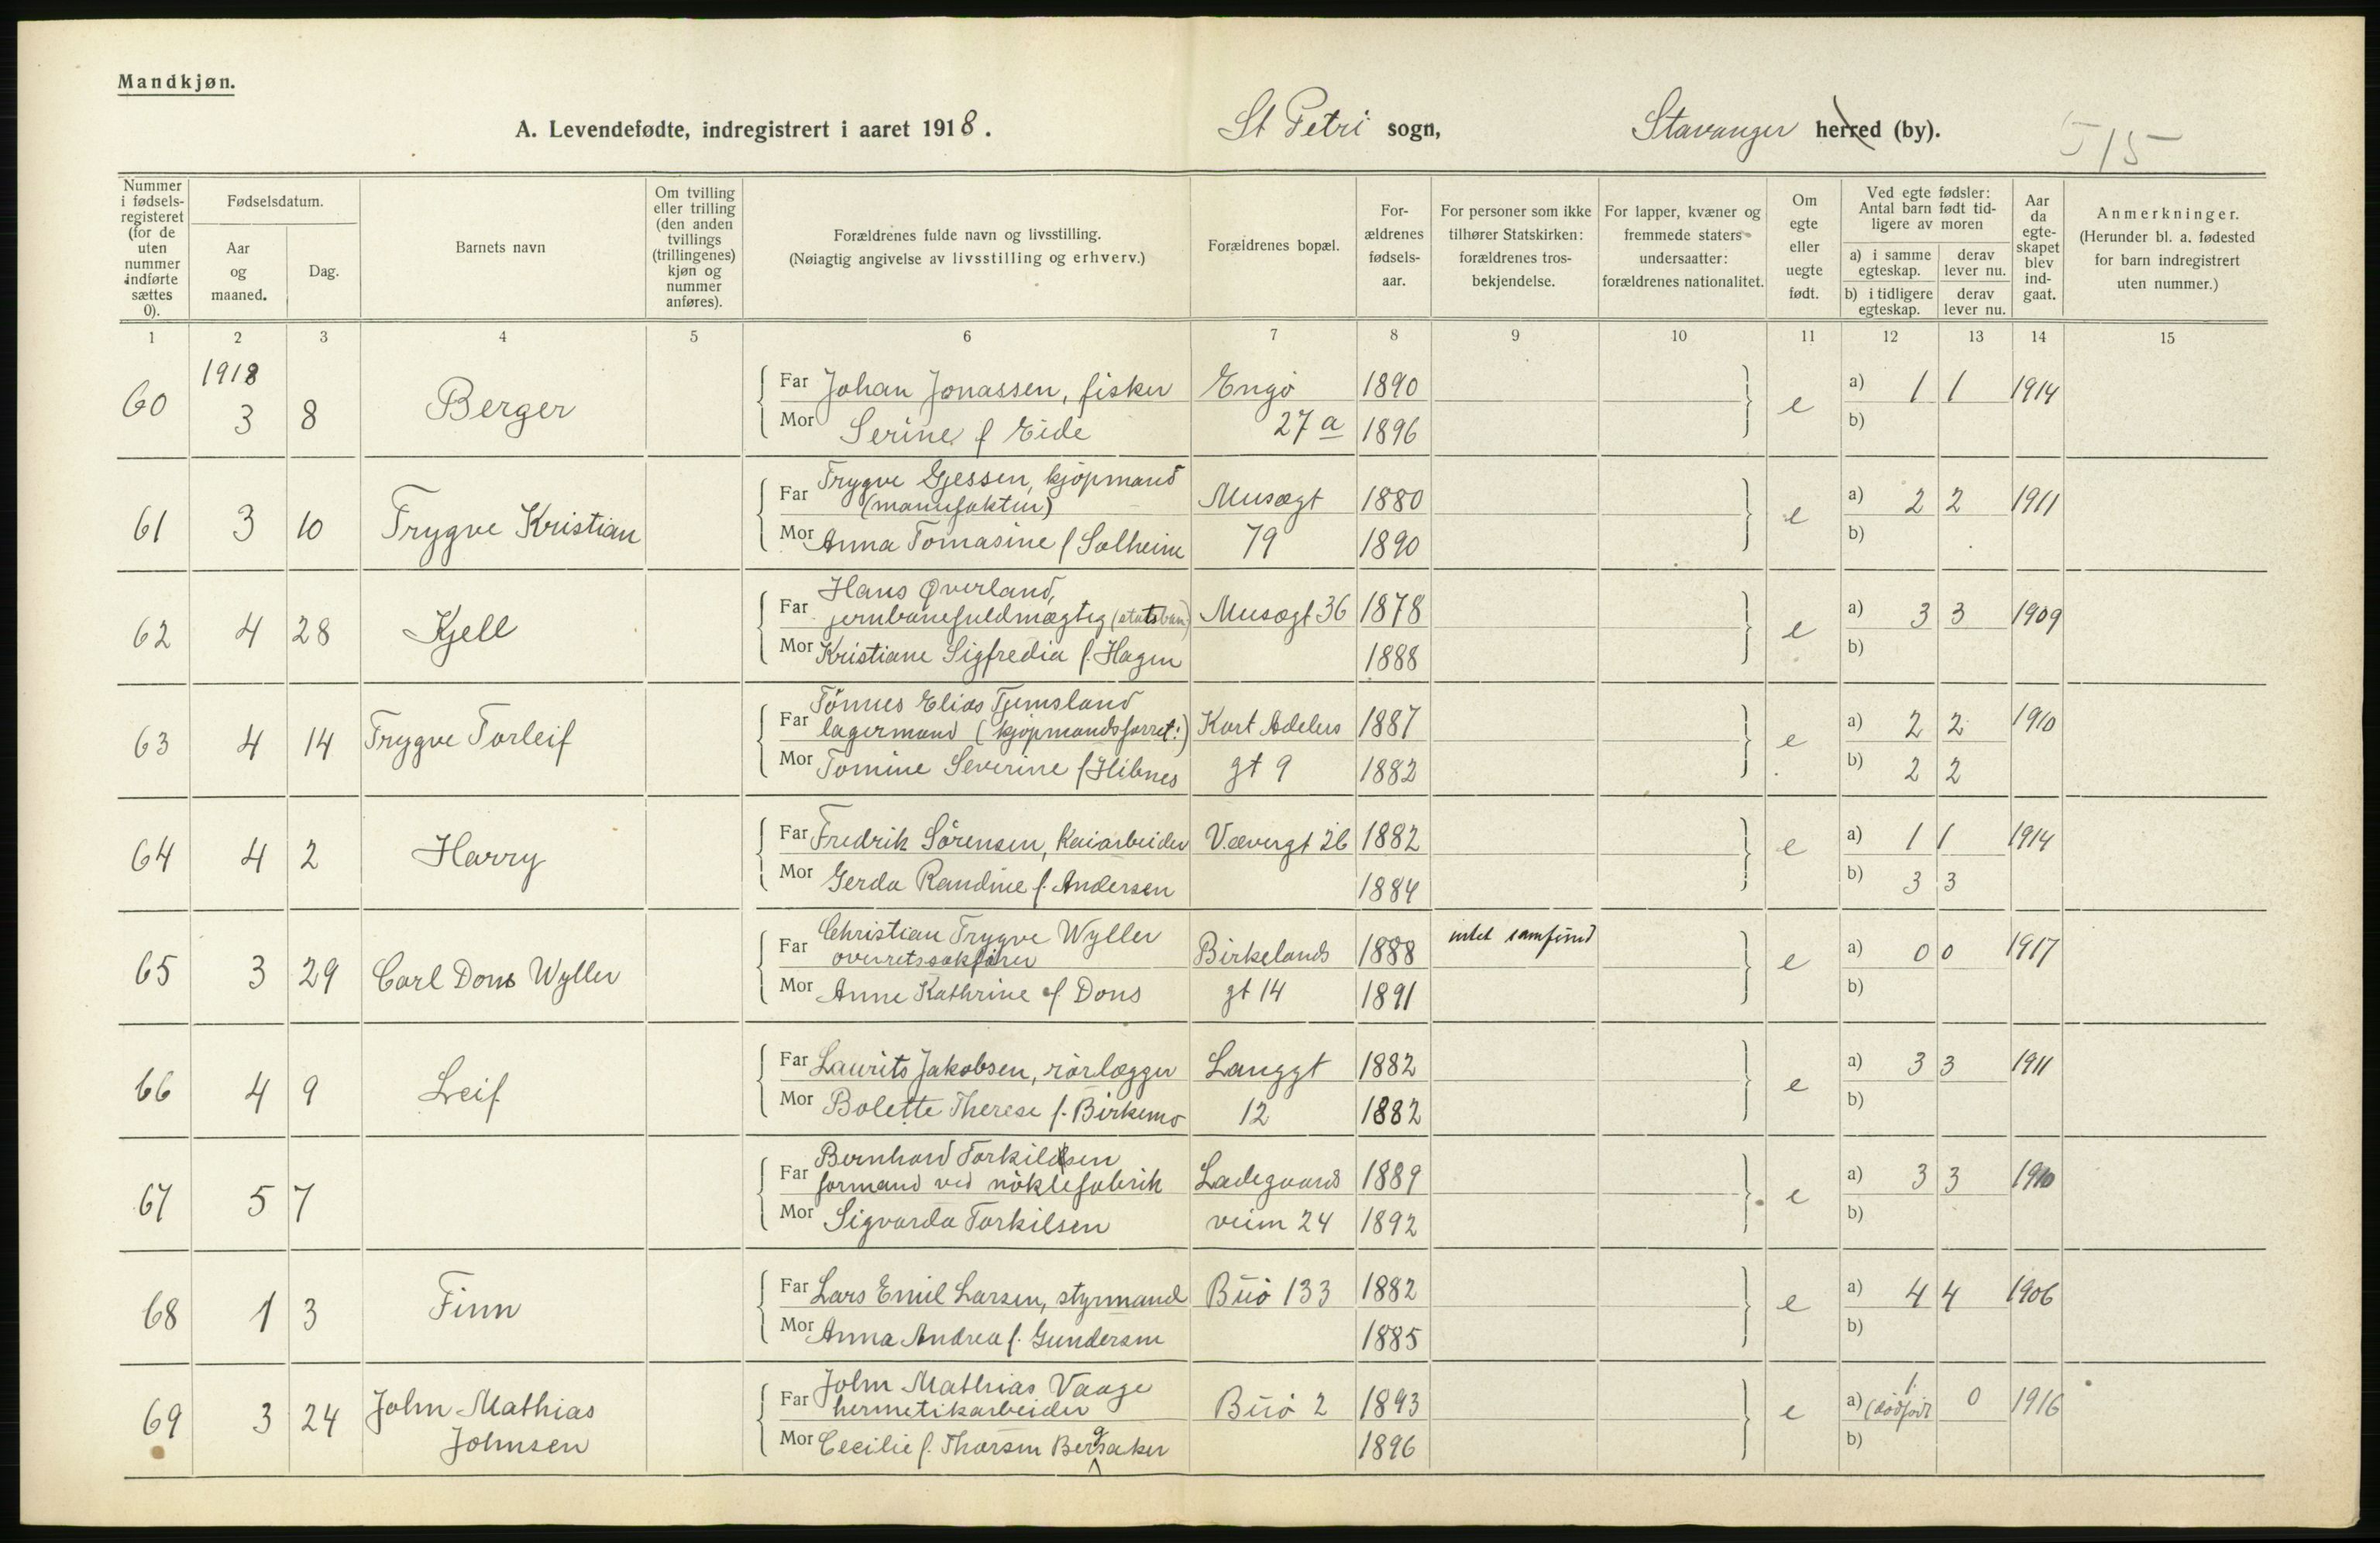 Mandkjøn.
A. Levendefødte, indregistrert i aaret 1918. St Petri sogn, Stavanger herred (by). 515
Nummer i fødsels-registeret (for de uten nummer indførte sættes 0).
Fødselsdatum.
Aar og maaned.
Dag.
Barnets navn
Om tvilling eller trilling (den anden tvillings (trillingenes) kjøn og nummer anføres).
Forældrenes fulde navn og livsstilling.
(Nøiagtig angivelse av livsstilling og erhverv.)
Forældrenes bopæl.
For-ældrenes fødsels-aar.
For personer som ikke tilhører Statskirken: forældrenes tros-bekjendelse.
For lapper, kvæner og fremmede staters undersaatter: forældrenes nationalitet.
Om egte eller uegte født.
Ved egte fødsler: Antal barn født tid-ligere av moren
a) i samme egteskap.
derav lever nu.
b) i tidligere egteskap.
derav lever nu.
Aar da egte-skapet blev ind-gaat.
Anmerkninger.
(Herunder bl. a. fødested for barn indregistrert uten nummer.)
1 2 3 4 5 6 7 8 9 10 11 12 13 14 15
1918
60 3 8 Berger Far Johan Jonassen, fisker Engø 1890 e a) 1 1 1914
Mor Serine f Eide 27 a 1896 b)
Trygve Gjessen, kjøpmand
61 3 10 Trygve Kristian Far (manufaktur) Musægt 1880 e a) 2 2 1911
Mor Anna Tomasine f Solheim 79 1890 b)
Hans Øverland,
62 4 28 Kjell Far jernbanefuldmægtig (statsban) Musægt 36 1878 e a) 3 3 1909
Mor Kristiane Sigfredia f. Hagen 1888 b)
Tønnes Elias Tjemsland
63 4 14 Trygve Torleif Far lagermand (kjøpmandsforret.) Kort Adelers 1887 e a) 2 2 1910
Mor Tomine Severine f Hibnes gt 9 1882 b) 2 2
64 4 2 Harry Far Fredrik Sørensen, Kaiarbeider Vævergt 26 1882 e a) 1 1 1914
Mor Gerda Randine f. Andersen 1884 b) 3 3
Christian Trygve Wyller
65 3 29 Carl Dons Wyller Far overretssakfører Birkelands 1888 intet samfund e a) 0 0 1917
Mor Anne Kathrine f Dons gt 14 1891 b)
66 4 9 Leif Far Laurits Jakobsen, rørlægger Langgt 1882 e a) 3 3 1911
Mor Bolette Therese f. Birkemo 12 1882 b)
Bernhard Torkildsen
67 5 7 Far formand ved nøklefabrik Ladegaards 1889 e a) 3 3 1910
Mor Sigvarda Torkilsen veien 24 1892 b)
68 1 3 Finn Far Lars Emil Larsen, styrmand Buø 133 1882 e a) 4 4 1906
Mor Anna Andrea f. Gundersen 1885 b)
John Mathias Vaage
69 3 24 John Mathias Far hermetikarbeider Buø 2 1893 e a) 1 (dødfødt 0 1916
Johnsen Mor Cecilie f. Thorsen Bergsaker 1896 b)